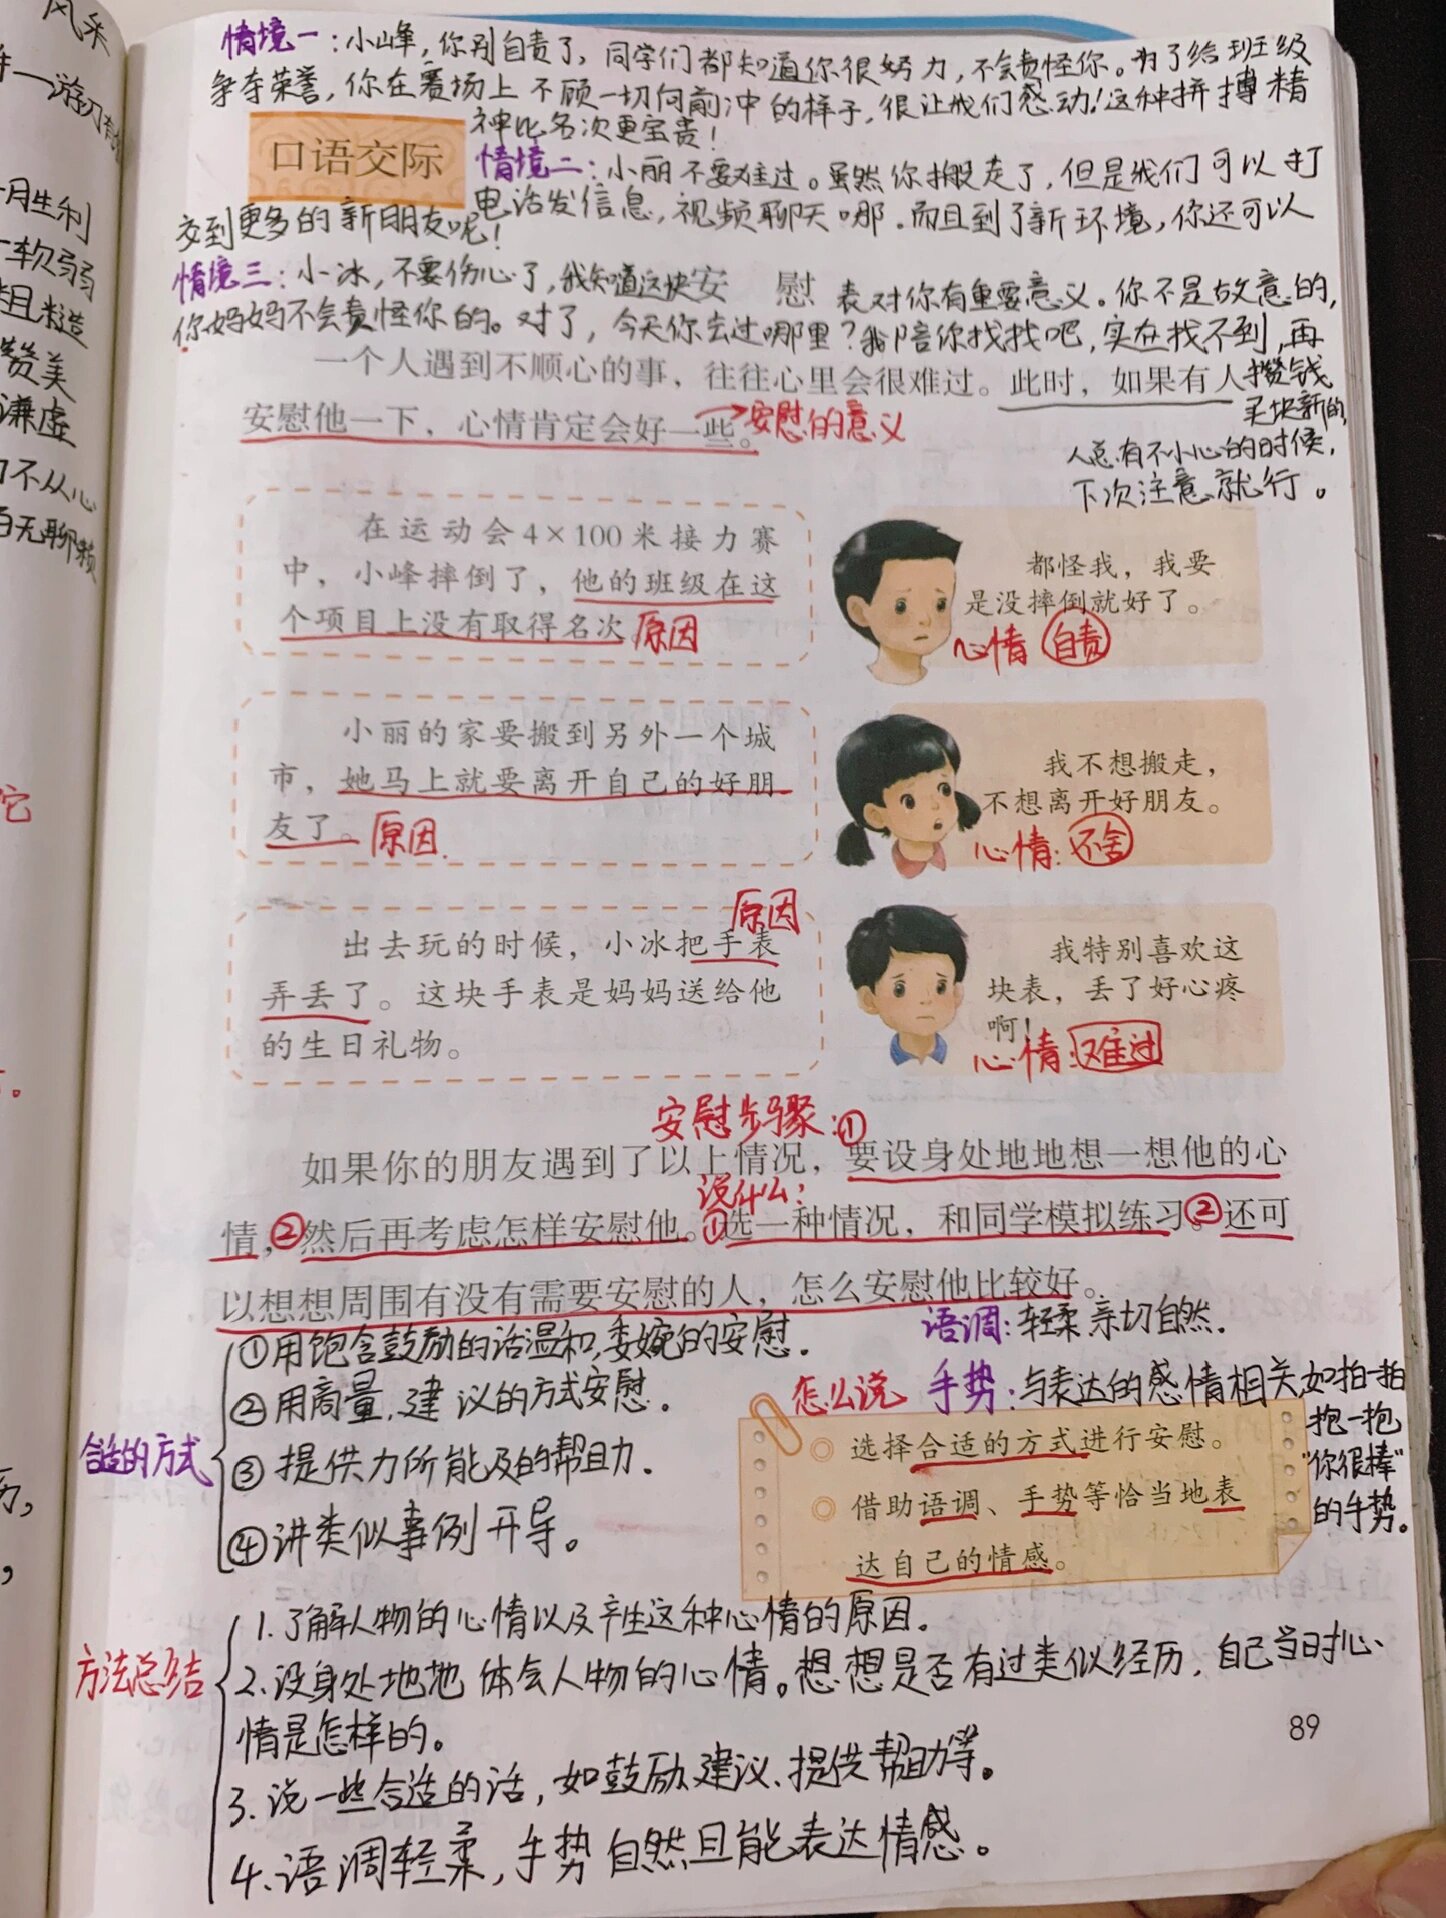 情境一：小峰，你别自责了，同学们都知道你很努力，不会责怪你。为了给班级
争夺荣誉，你在赛场上不顾一切向前冲的样子，很让我们感动！这种拼搏精
神比名次更宝贵！
口语交际
情境二：小丽不要难过。虽然你搬走了，但是我们可以打
电话发信息，视频聊天哪。而且到了新环境，你还可以
交到更多的新朋友呢！
情境三：小冰，不要伤心了，我知道这块
安慰
表对你有重要意义。你不是故意的，
你妈妈不会责怪你的。对了，今天你去过哪里？我陪你找找吧，实在找不到，再
攒钱
买块新的，
人总有不小心的时候，
下次注意就行。
一个人遇到不顺心的事，往往心里会很难过。此时，如果有人
安慰他一下，心情肯定会好一些。
安慰的意义
在运动会4×100米接力赛
中，小峰摔倒了，他的班级在这
个项目上没有取得名次
原因
都怪我，我要
是没摔倒就好了。
心情 自责
小丽的家要搬到另外一个城
市，她马上就要离开自己的好朋
友了。
原因
我不想搬走，
不想离开好朋友。
心情：不舍
原因
出去玩的时候，小冰把手表
弄丢了。这块手表是妈妈送给他
的生日礼物。
我特别喜欢这
块表，丢了好心疼
啊！
心情：难过
安慰步骤：①
如果你的朋友遇到了以上情况，要设身处地地想一想他的心
说什么：
情，②然后再考虑怎样安慰他。①选一种情况，和同学模拟练习。②还可
以想想周围有没有需要安慰的人，怎么安慰他比较好。
合适的方式
①用饱含鼓励的话温和，委婉的安慰．
②用商量，建议的方式安慰．
③提供力所能及的帮助．
④讲类似事例开导。
语调：轻柔亲切自然．
怎么说
手势：与表达的感情相关如拍一拍
抱一抱
“你很棒”
的手势。
选择合适的方式进行安慰。
借助语调、手势等恰当地表
达自己的情感。
方法总结
1.了解人物的心情以及产生这种心情的原因。
2.设身处地地体会人物的心情。想想是否有过类似经历，自己当时心
情是怎样的。
3.说一些合适的话，如鼓励、建议、提供帮助等。
4.语调轻柔，手势自然且能表达情感。
89
风采
月生利
软弱
粗糙
赞美
谦虚
力不从心
百无聊赖
它